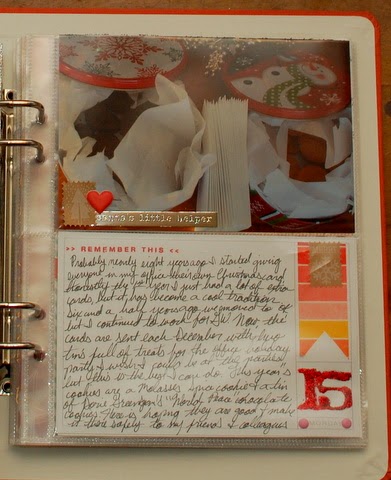 santa's little helper
>> REMEMBER THIS <<
Probably nearly eight years ago I started giving
everyone in my office their own Christmas card
Honestly the 1st year I just had a lot of extra
cards, but it has become a cool tradition
Six and a half years ago we moved to
but I continued to work for Now the
cards are sent each December with two
tins full of treats for the office holiday
party I wish I could be at the
but this is the best I can do. This year's
cookies are a Molasses Spice cookie & a tin
of Dorie Greenspan's World Peace chocolate
cookies Here is hoping they are good & make
it there safely to my friends & colleagues
15
MONDAY